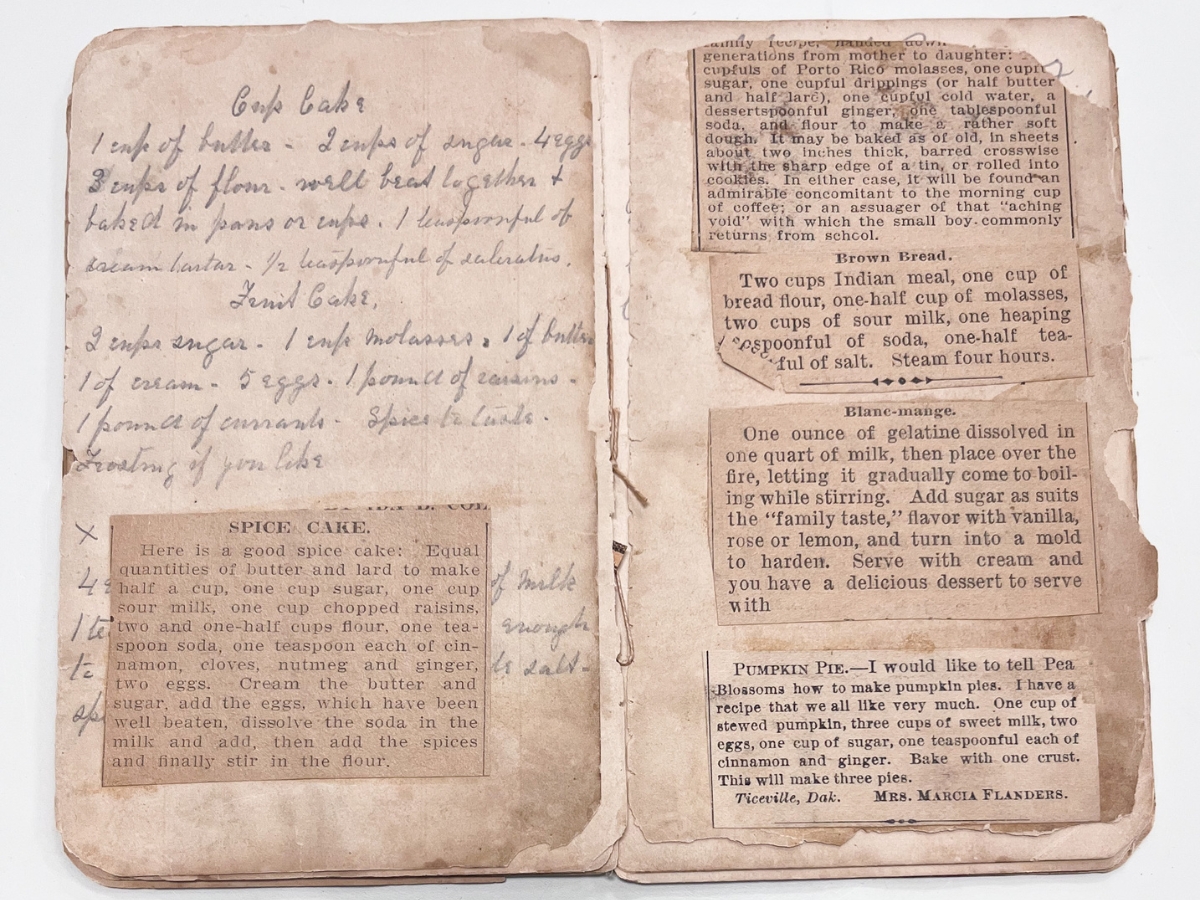 Cup Cake
1 cup of butter - 2 cups of sugar - 4 eggs
3 cups of flour - well beat together +
baked in pans or cups. 1 teaspoonful of
cream tartar - 1/2 teaspoonful of saleratus.
Fruit Cake.
2 cups sugar - 1 cup molasses. 1 of butter
1 of cream - 5 eggs - 1 pound of raisins -
1 pound of currants - Spice to taste -
Frosting if you like
X
of milk
enough
salt -
SPICE CAKE.
Here is a good spice cake: Equal
quantities of butter and lard to make
half a cup, one cup sugar, one cup
sour milk, one cup chopped raisins,
two and one-half cups flour, one tea-
spoon soda, one teaspoon each of cin-
namon, cloves, nutmeg and ginger,
two eggs. Cream the butter and
sugar, add the eggs, which have been
well beaten, dissolve the soda in the
milk and add, then add the spices
and finally stir in the flour.
family recipe, handed down
generations from mother to daughter:
cupfuls of Porto Rico molasses, one cupful
sugar, one cupful drippings (or half butter
and half lard), one cupful cold water, a
dessertspoonful ginger, one tablespoonful
soda, and flour to make a rather soft
dough. It may be baked as of old, in sheets
about two inches thick, barred crosswise
with the sharp edge of a tin, or rolled into
cookies. In either case, it will be found an
admirable concomitant to the morning cup
of coffee; or an assuager of that "aching
void" with which the small boy commonly
returns from school.
Brown Bread.
Two cups Indian meal, one cup of
bread flour, one-half cup of molasses,
two cups of sour milk, one heaping
spoonful of soda, one-half tea-
ful of salt. Steam four hours.
Blanc-mange.
One ounce of gelatine dissolved in
one quart of milk, then place over the
fire, letting it gradually come to boil-
ing while stirring. Add sugar as suits
the "family taste," flavor with vanilla,
rose or lemon, and turn into a mold
to harden. Serve with cream and
you have a delicious dessert to serve
with
PUMPKIN PIE.—I would like to tell Pea
Blossoms how to make pumpkin pies. I have a
recipe that we all like very much. One cup of
stewed pumpkin, three cups of sweet milk, two
eggs, one cup of sugar, one teaspoonful each of
cinnamon and ginger. Bake with one crust.
This will make three pies.
Ticeville, Dak. MRS. MARCIA FLANDERS.